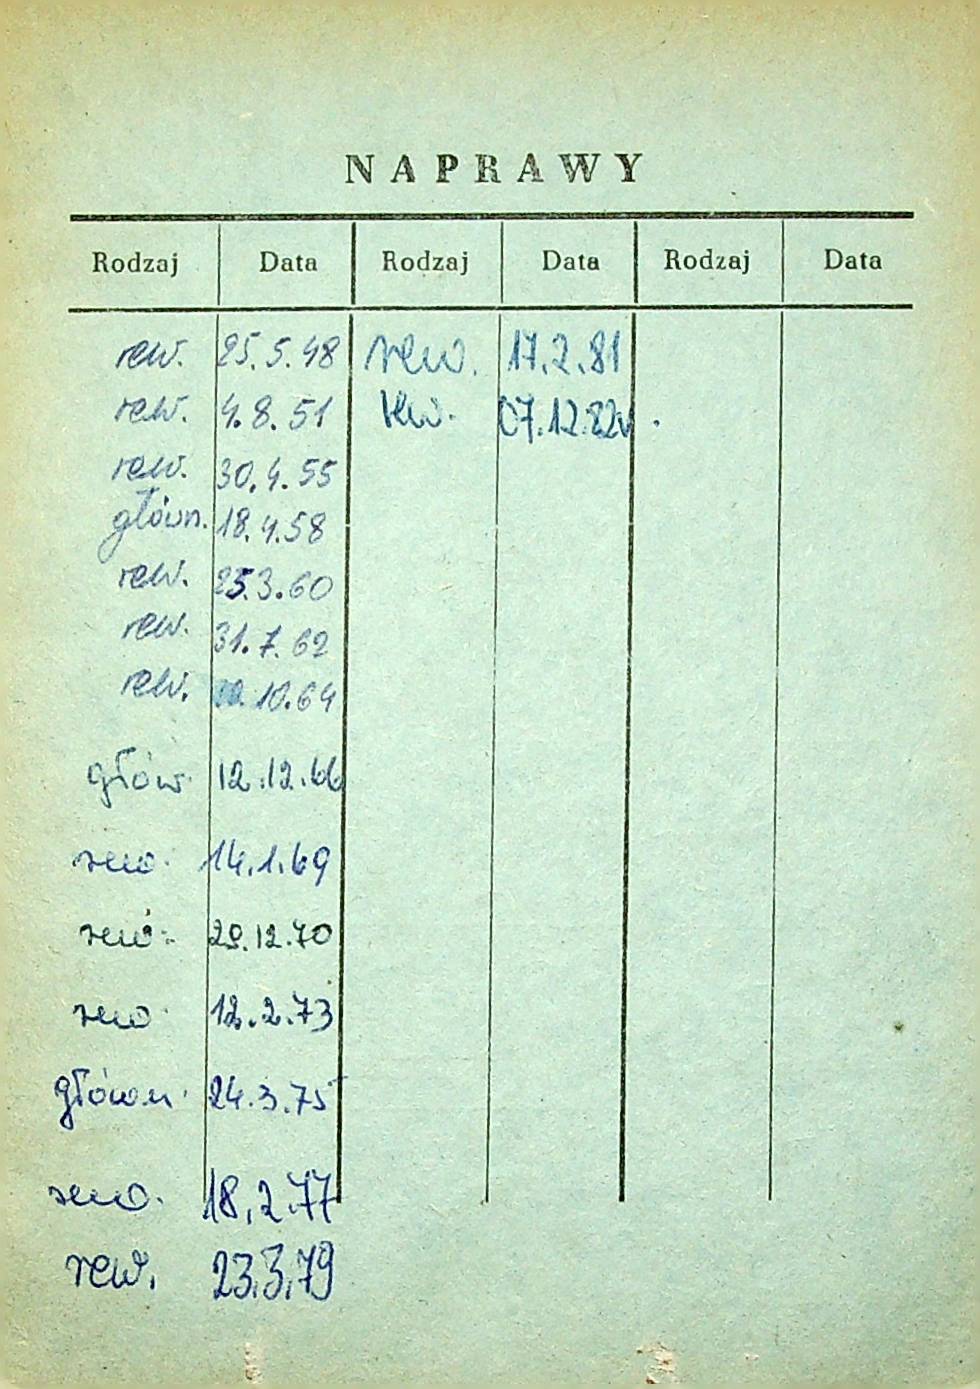 NAPRAWY
Rodzaj Data Rodzaj Data Rodzaj Data
rew. 25.5.48 rew. 17.2.81
rew. 4.8.51 rew. 07.12.82r.
rew. 30.4.55
główn. 18.4.58
rew. 25.3.60
rew. 31.7.62
rew. 10.64
głów. 12.12.66
rew. 14.1.69
rew. 29.12.70
rew. 12.2.73
główn. 24.3.75
rew. 18.2.77
rew. 23.3.79